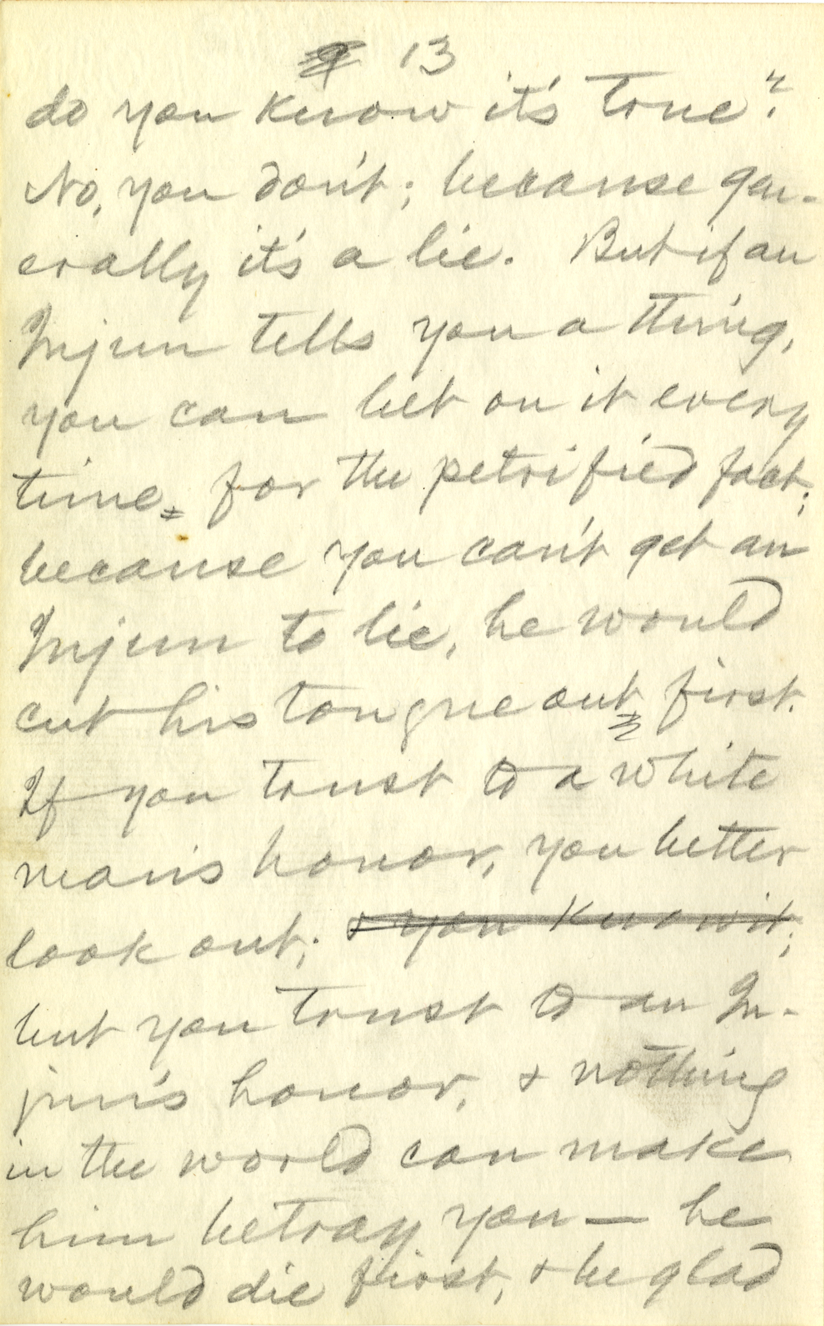 13
do you know it's true?
No, you don't; because gen-
erally it's a lie. But if an
Injun tells you a thing,
you can bet on it every
time, for the petrified fact;
because you can't get an
Injun to lie, he would
cut his tongue out first.
If you trust to a white
man's honor, you better
look out; & you know it;
but you trust to an In-
jun's honor, & nothing
in the world can make
him betray you — he
would die first, & be glad